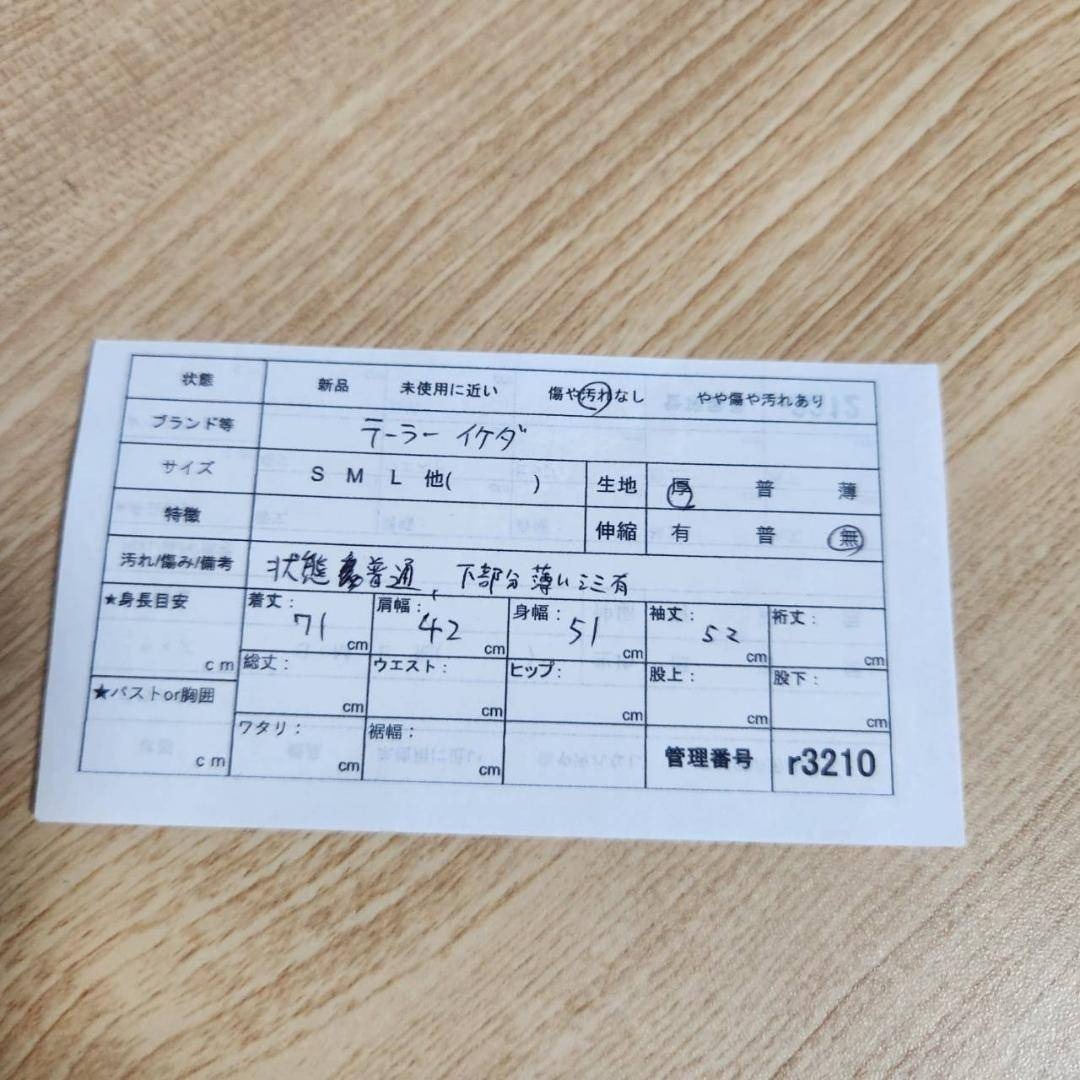 状態 新品 未使用に近い 傷や汚れなし やや傷や汚れあり
ブランド等 テーラー イケダ
サイズ S M L 他( ) 生地 厚 普 薄
特徴 伸縮 有 普 無
汚れ/傷み/備考 状態普通、下部分薄いシミ有
★身長目安 cm 着丈: 71 cm 肩幅: 42 cm 身幅: 51 cm 袖丈: 52 cm 裄丈: cm
総丈: cm ウエスト: cm ヒップ: cm 股上: cm 股下: cm
★バストor胸囲 cm ワタリ: cm 裾幅: cm 管理番号 r3210